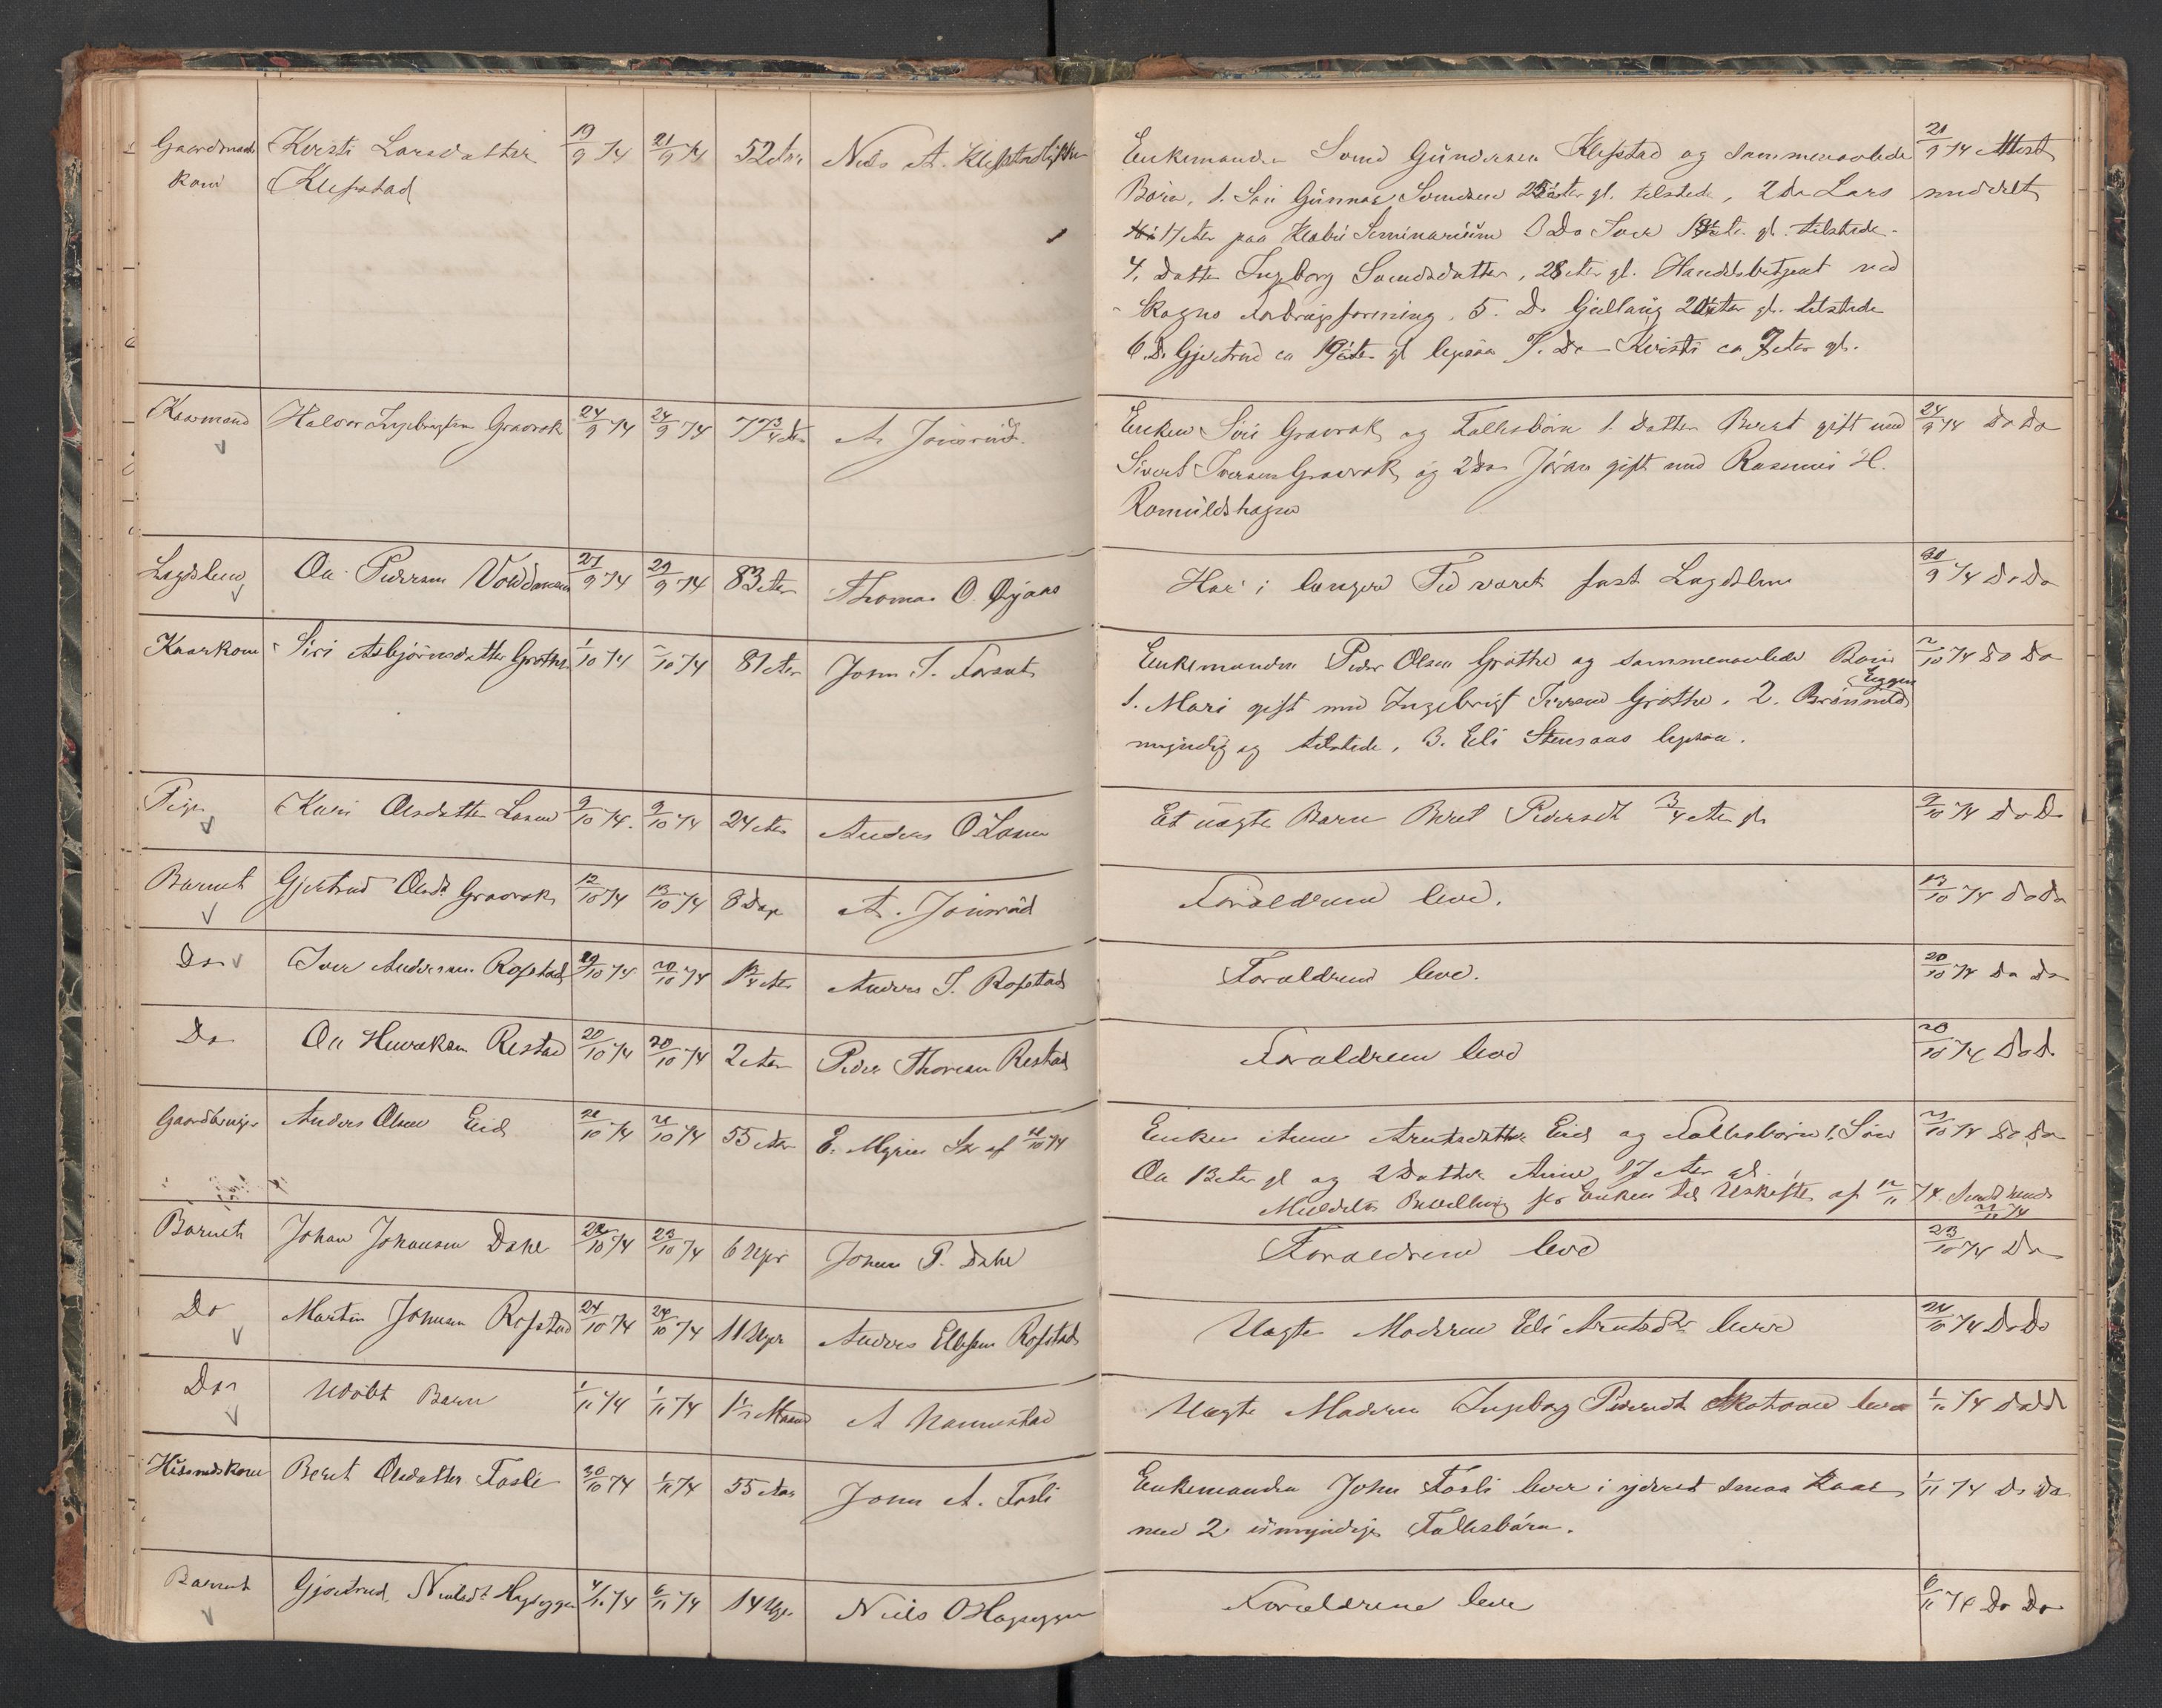 Gaardmands Kirsti Larsdatter 19/9 74 21/9 74 52 Aar Niels A. Klefstad
kone Klefstad
Enkemanden Svend Gundersen Klefstad og sammenavlede 21/9 74 Attest
Börn, 1. Sön Gunnar Svendsen 25 Aar gl. tilstede, 2 Do Lars meddelt
17 Aar paa Klæbu Seminarium 3 Do Iver gl. tilstede
4. Datter Ingeborg Svendsdatter, 28 Aar gl. Handelsbetjent ved
Skogns Forbrugsforening, 5. Do Gjellaug 20 Aar gl. tilstede
6. Do Gjertrud ca 19 Aar gl ligesaa 7. Do Kirsti ca 7 Aar gl.
Kaarmand Halvor Ingebrigtsen Gravrok 24/9 74 24/9 74 77 3/4 Aar A. Joinsrud
Enken Siri Gravrok og Fællesbörn 1. Datter Beret gift med 24/9 74 Do Do
Sivert Iversen Gravrok og 2 Do Jöran gift med Rasmus H.
Romuldshagen
Lægdslem Ole Pedersen 27/9 74 29/9 74 83 Aar Thomas O. Øyaas
Har i længere Tid været fast Lægdslem 30/9 74 Do Do
Kaarkone Siri Asbjörnsdatter Gröthe 1/10 74 2/10 74 81 Aar John I. Forset
Enkemanden Peder Olsen Gröthe og sammenavlede Börn 2/10 74 Do Do
1. Mari gift med Ingebrigt Iversen Gröthe. 2. Brönnild Eggen
myndig og tilstede, 3. Eli Stensaas ligesaa.
Pige Kari Olsdatter Losen 9/10 74 9/10 74 24 Aar Anders O Losen
Et uægte Barn Beret Pedersdt 3/4 Aar gl. 9/10 74 Do Do
Barnet Gjertrud Olsdt Gravrok 12/10 74 13/10 74 8 Dage A. Joinsrud
Forældrene leve. 13/10 74 Do Do
Do Iver Andersen Rofstad 19/10 74 20/10 74 Anders I. Rofstad
Forældrene leve. 20/10 74 Do Do
Do Ole Restad 20/10 74 20/10 74 2 Aar Peder Thoresen Restad
Forældrene leve 20/10 74 Do Do
Gaardbruger Anders Olsen Eid 21/10 74 21/10 74 55 Aar E. Myren
Enken Anne Arntsdatter Eid og Fællesbörn 1. Sön 21/10 74 Do Do
Ole 13 Aar gl og 2 Datter Anne 17 Aar gl.
Meddelt Bevilling for Enken til Uskifte af 12/11 74.
Barnet Johan Johansen Dahl 22/10 74 23/10 74 6 Uger Johan P. Dahl
Forældrene leve 23/10 74 Do
Do Martin Johnsen Rofstad 24/10 74 24/10 74 11 Uger Anders Ellefsen Rofstad
Uægte Moderen Eli Arntsdtr lever 24/10 74 Do Do
Do Udöbt Barn 1/11 74 1/11 74 1 1/2 Maaned A Hannestad
Uægte Moderen Ingeborg Pedersdt lever 1/11 74 Do Do
Huusmandskone Beret Olsdatter Fosli 30/10 74 1/11 74 55 Aar John A. Fosli
Enkemanden John Fosli lever i yderst smaa Kaar 1/11 74 Do Do
med 2 umyndige Fællesbörn.
Barnet Gjertrud Nielsdt Hageeggen 4/11 74 6/11 74 14 Uger Niels O Hageeggen
Forældrene leve 6/11 74 Do Do